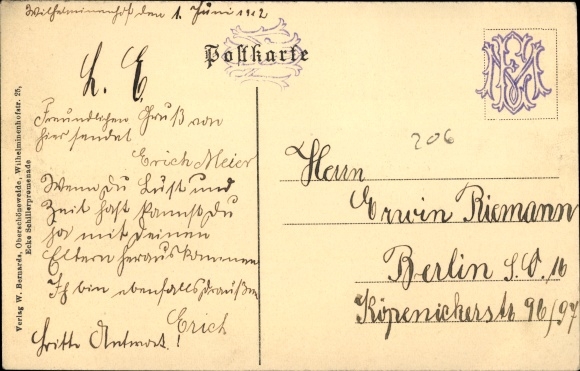 Wilhelminenhof den 1. Juni 1912
Postkarte
L. E.
Freundlichen Gruß von
hier sendet
Erich Meier
Wenn du Lust und
Zeit hast kannst du
ja mit deinen
Eltern herauskommen
Ich bin ebenfalls draußen
Erich
Bitte Antwort!
206
Herrn
Erwin Riemann
Berlin S.O. 16
Köpenickerstr 96/97
Verlag W. Bernards, Oberschöneweide, Wilhelminenhofstr. 25,
Ecke Schillerpromenade